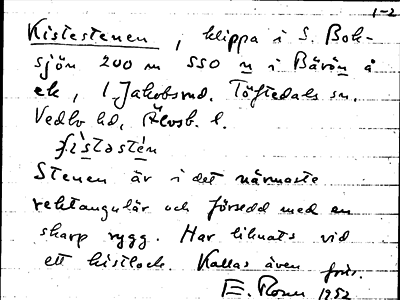 1-2
Kistestenen, klippa i S. Bok-
sjön 200 m SSO n i Bärön å
ek, 1 Jakobsrud. Töftedals sn.
Vedbo hd, Älvsb. l.
Stenen är i det närmaste
rektangulär och försedd med en
skarp rygg. Har liknats vid
ett kistlock. Kallas även
E. 1952